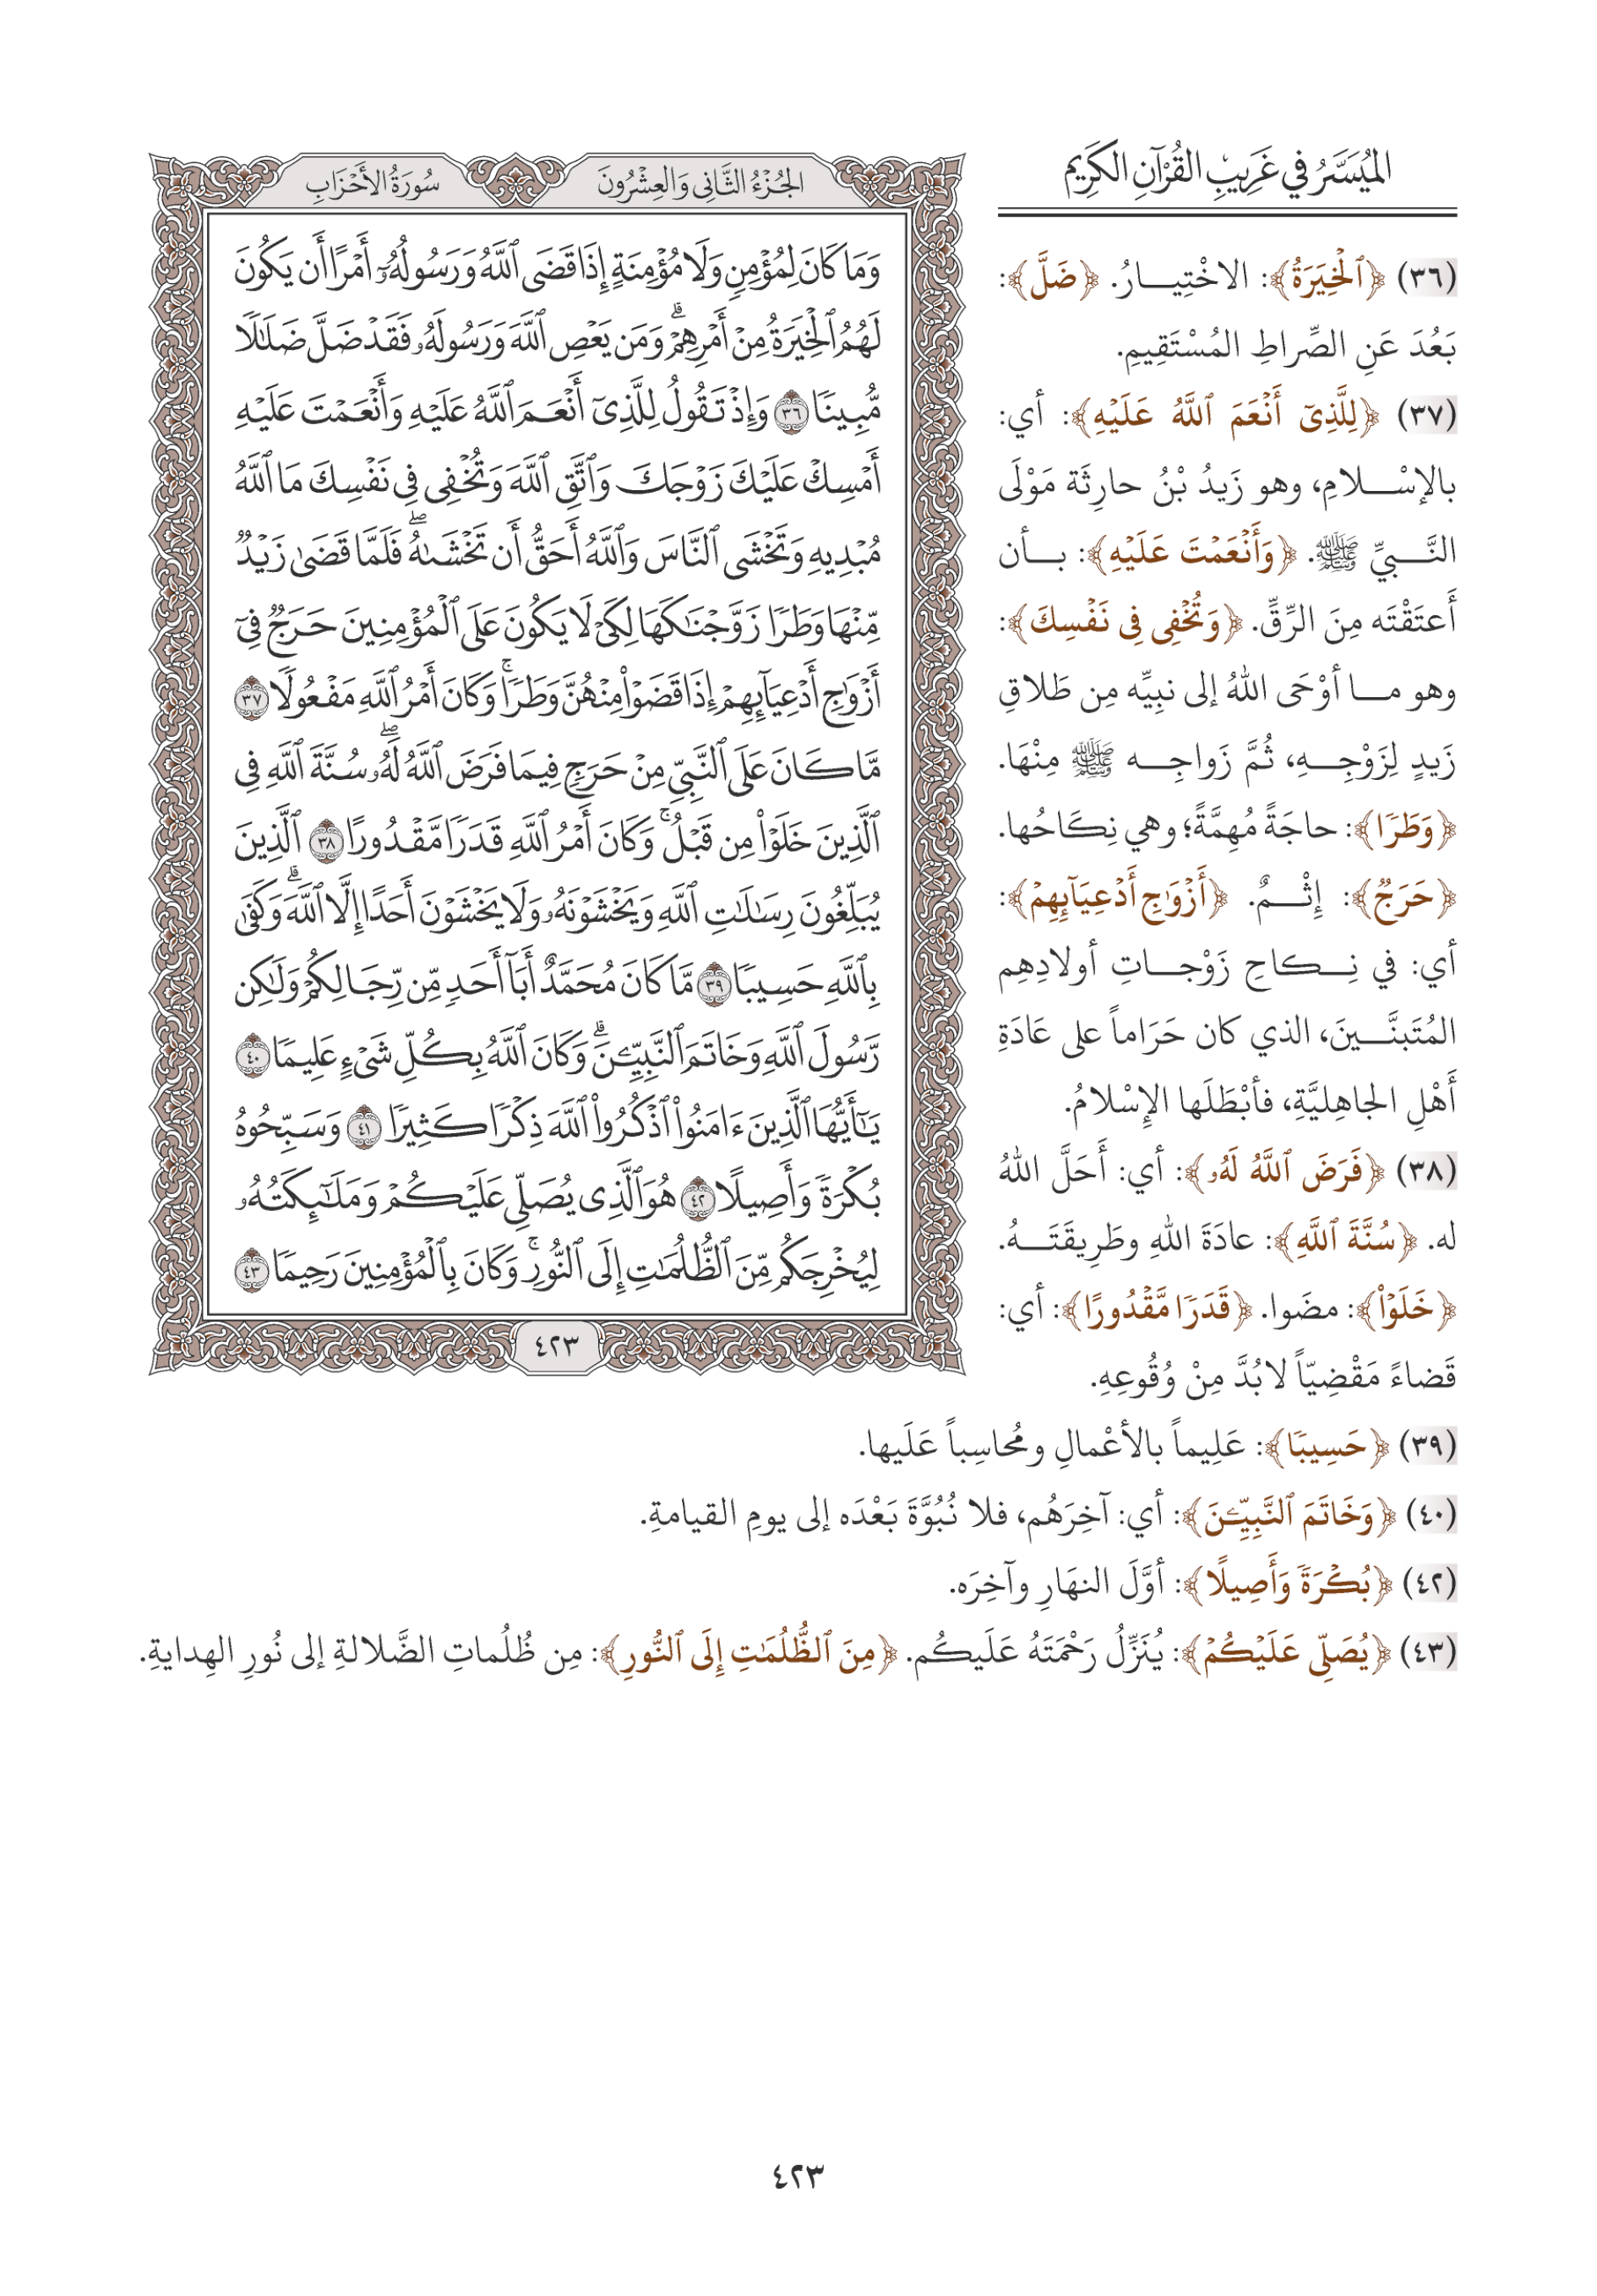 الميَسَّرُ في غَرِيبِ القُرْآنِ الكَرِيمِ
(٣٦) ﴿ٱلْخِيَرَةُ﴾: الاخْتِيارُ. ﴿ضَلَّ﴾:
بَعُدَ عَنِ الصِّراطِ المُسْتَقِيمِ.
(٣٧) ﴿لِلَّذِىٓ أَنْعَمَ ٱللَّهُ عَلَيْهِ﴾: أي:
بالإسْلامِ، وهو زَيدُ بْنُ حارِثَة مَوْلَى
النَّبيِّ ﷺ. ﴿وَأَنْعَمْتَ عَلَيْهِ﴾: بأن
أَعتَقْتَه مِنَ الرِّقِّ. ﴿وَتُخْفِى فِى نَفْسِكَ﴾:
وهو ما أوْحَى اللهُ إلى نبيِّه مِن طَلاقِ
زَيدٍ لِزَوْجِهِ، ثُمَّ زَواجِه ﷺ مِنْهَا.
﴿وَطَرًا﴾: حاجَةً مُهِمَّةً؛ وهي نِكَاحُها.
﴿حَرَجٌ﴾: إِثْمٌ. ﴿أَزْوَٰجِ أَدْعِيَآئِهِمْ﴾:
أي: في نِكاحِ زَوْجاتِ أولادِهِم
المُتَبنَّينَ، الذي كان حَرَاماً على عَادَةِ
أَهْلِ الجاهِليَّةِ، فأبْطَلَها الإِسْلامُ.
(٣٨) ﴿فَرَضَ ٱللَّهُ لَهُۥ﴾: أي: أَحَلَّ اللهُ
له. ﴿سُنَّةَ ٱللَّهِ﴾: عادَةَ اللهِ وطَرِيقَتَهُ.
﴿خَلَوْا۟﴾: مضَوا. ﴿قَدَرًا مَّقْدُورًا﴾: أي:
قَضاءً مَقْضِيّاً لابُدَّ مِنْ وُقُوعِهِ.
سُورَةُ الأَحْزَابِ
الجُزْءُ الثَّانِى وَالعِشْرُونَ
وَمَا كَانَ لِمُؤْمِنٍ وَلَا مُؤْمِنَةٍ إِذَا قَضَى ٱللَّهُ وَرَسُولُهُۥٓ أَمْرًا أَن يَكُونَ
لَهُمُ ٱلْخِيَرَةُ مِنْ أَمْرِهِمْ ۗ وَمَن يَعْصِ ٱللَّهَ وَرَسُولَهُۥ فَقَدْ ضَلَّ ضَلَٰلًا
مُّبِينًا ٣٦ وَإِذْ تَقُولُ لِلَّذِىٓ أَنْعَمَ ٱللَّهُ عَلَيْهِ وَأَنْعَمْتَ عَلَيْهِ
أَمْسِكْ عَلَيْكَ زَوْجَكَ وَٱتَّقِ ٱللَّهَ وَتُخْفِى فِى نَفْسِكَ مَا ٱللَّهُ
مُبْدِيهِ وَتَخْشَى ٱلنَّاسَ وَٱللَّهُ أَحَقُّ أَن تَخْشَىٰهُ ۖ فَلَمَّا قَضَىٰ زَيْدٌ
مِّنْهَا وَطَرًا زَوَّجْنَٰكَهَا لِكَىْ لَا يَكُونَ عَلَى ٱلْمُؤْمِنِينَ حَرَجٌ فِىٓ
أَزْوَٰجِ أَدْعِيَآئِهِمْ إِذَا قَضَوْا۟ مِنْهُنَّ وَطَرًا ۚ وَكَانَ أَمْرُ ٱللَّهِ مَفْعُولًا ٣٧
مَّا كَانَ عَلَى ٱلنَّبِىِّ مِنْ حَرَجٍ فِيمَا فَرَضَ ٱللَّهُ لَهُۥ ۖ سُنَّةَ ٱللَّهِ فِى
ٱلَّذِينَ خَلَوْا۟ مِن قَبْلُ ۚ وَكَانَ أَمْرُ ٱللَّهِ قَدَرًا مَّقْدُورًا ٣٨ ٱلَّذِينَ
يُبَلِّغُونَ رِسَٰلَٰتِ ٱللَّهِ وَيَخْشَوْنَهُۥ وَلَا يَخْشَوْنَ أَحَدًا إِلَّا ٱللَّهَ ۗ وَكَفَىٰ
بِٱللَّهِ حَسِيبًا ٣٩ مَّا كَانَ مُحَمَّدٌ أَبَآ أَحَدٍ مِّن رِّجَالِكُمْ وَلَٰكِن
رَّسُولَ ٱللَّهِ وَخَاتَمَ ٱلنَّبِيِّـۧنَ ۗ وَكَانَ ٱللَّهُ بِكُلِّ شَىْءٍ عَلِيمًا ٤٠
يَٰٓأَيُّهَا ٱلَّذِينَ ءَامَنُوا۟ ٱذْكُرُوا۟ ٱللَّهَ ذِكْرًا كَثِيرًا ٤١ وَسَبِّحُوهُ
بُكْرَةً وَأَصِيلًا ٤٢ هُوَ ٱلَّذِى يُصَلِّى عَلَيْكُمْ وَمَلَٰٓئِكَتُهُۥ
لِيُخْرِجَكُم مِّنَ ٱلظُّلُمَٰتِ إِلَى ٱلنُّورِ ۚ وَكَانَ بِٱلْمُؤْمِنِينَ رَحِيمًا ٤٣
٤٢٣
(٣٩) ﴿حَسِيبًا﴾: عَلِيماً بالأعْمالِ ومُحاسِباً عَلَيها.
(٤٠) ﴿وَخَاتَمَ ٱلنَّبِيِّـۧنَ﴾: أي: آخِرَهُم، فلا نُبُوَّةَ بَعْدَه إلى يومِ القيامةِ.
(٤٢) ﴿بُكْرَةً وَأَصِيلًا﴾: أوَّلَ النهَارِ وآخِرَه.
(٤٣) ﴿يُصَلِّى عَلَيْكُمْ﴾: يُنَزِّلُ رَحْمَتَهُ عَلَيكُم. ﴿مِنَ ٱلظُّلُمَٰتِ إِلَى ٱلنُّورِ﴾: مِن ظُلُماتِ الضَّلالةِ إلى نُورِ الهِدايةِ.
٤٢٣